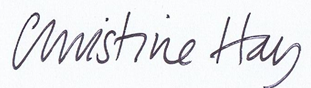 Christine Hay